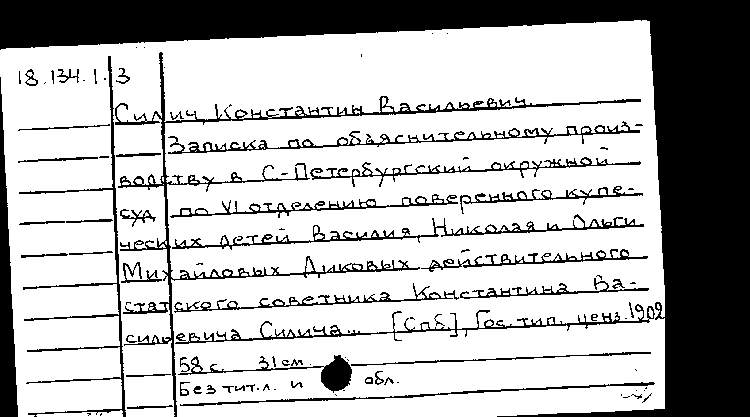 18.134.1.3
Силич, Константин Васильевич.
Записка по объяснительному произ-
водству в С-Петербургский окружной
суд по VI отделению поверенного купе-
ческих детей Василия, Николая и Ольги
Михайловых Диковых действительного
статского советника Константина Ва-
сильевича Силича... [Спб.], Гос. тип., ценз. 1902
58 с. 31 см.
Без тит. л. и обл.